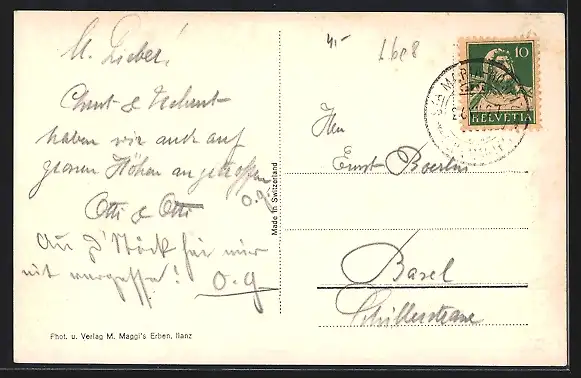 M. Lieber!
haben wir auch auf
Höhen angetroffen
Otti & Otti
O.g.
Au d'Stöck hei mir
nit vergesse! O.g
Made in Switzerland
Phot. u. Verlag M. Maggi's Erben, Ilanz
4.-
L608
10
HELVETIA
Herr
Ernst Boerlin
Basel
Schillerstrasse